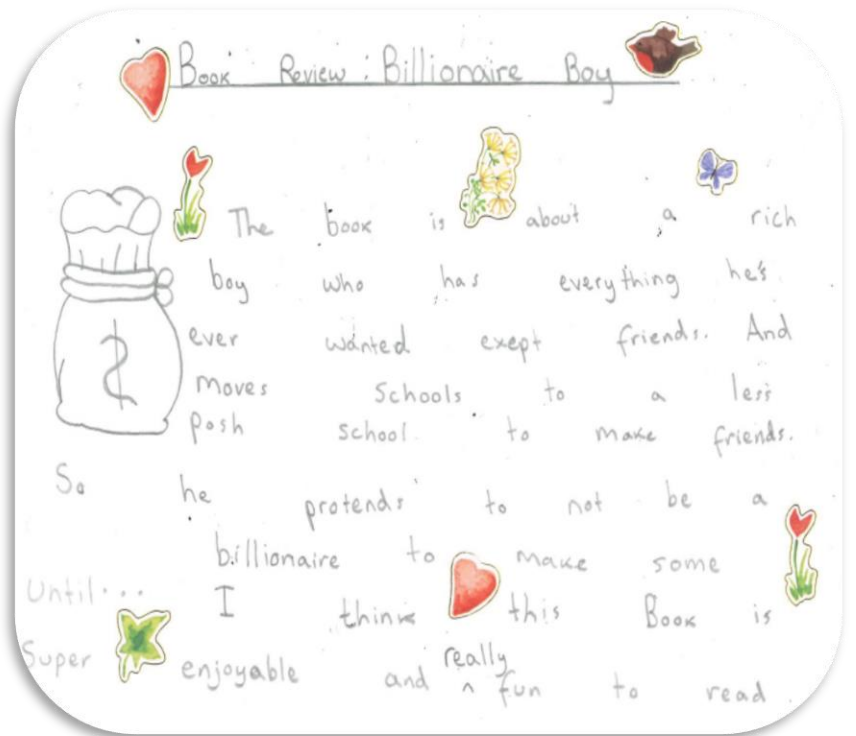 Book Review : Billionaire Boy
The book is about a rich
boy who has everything he's
ever wanted exept friends. And
moves schools to a less
posh school to make friends.
So he protends to not be a
billionaire to make some
Until... I think this Book is
Super enjoyable and really fun to read